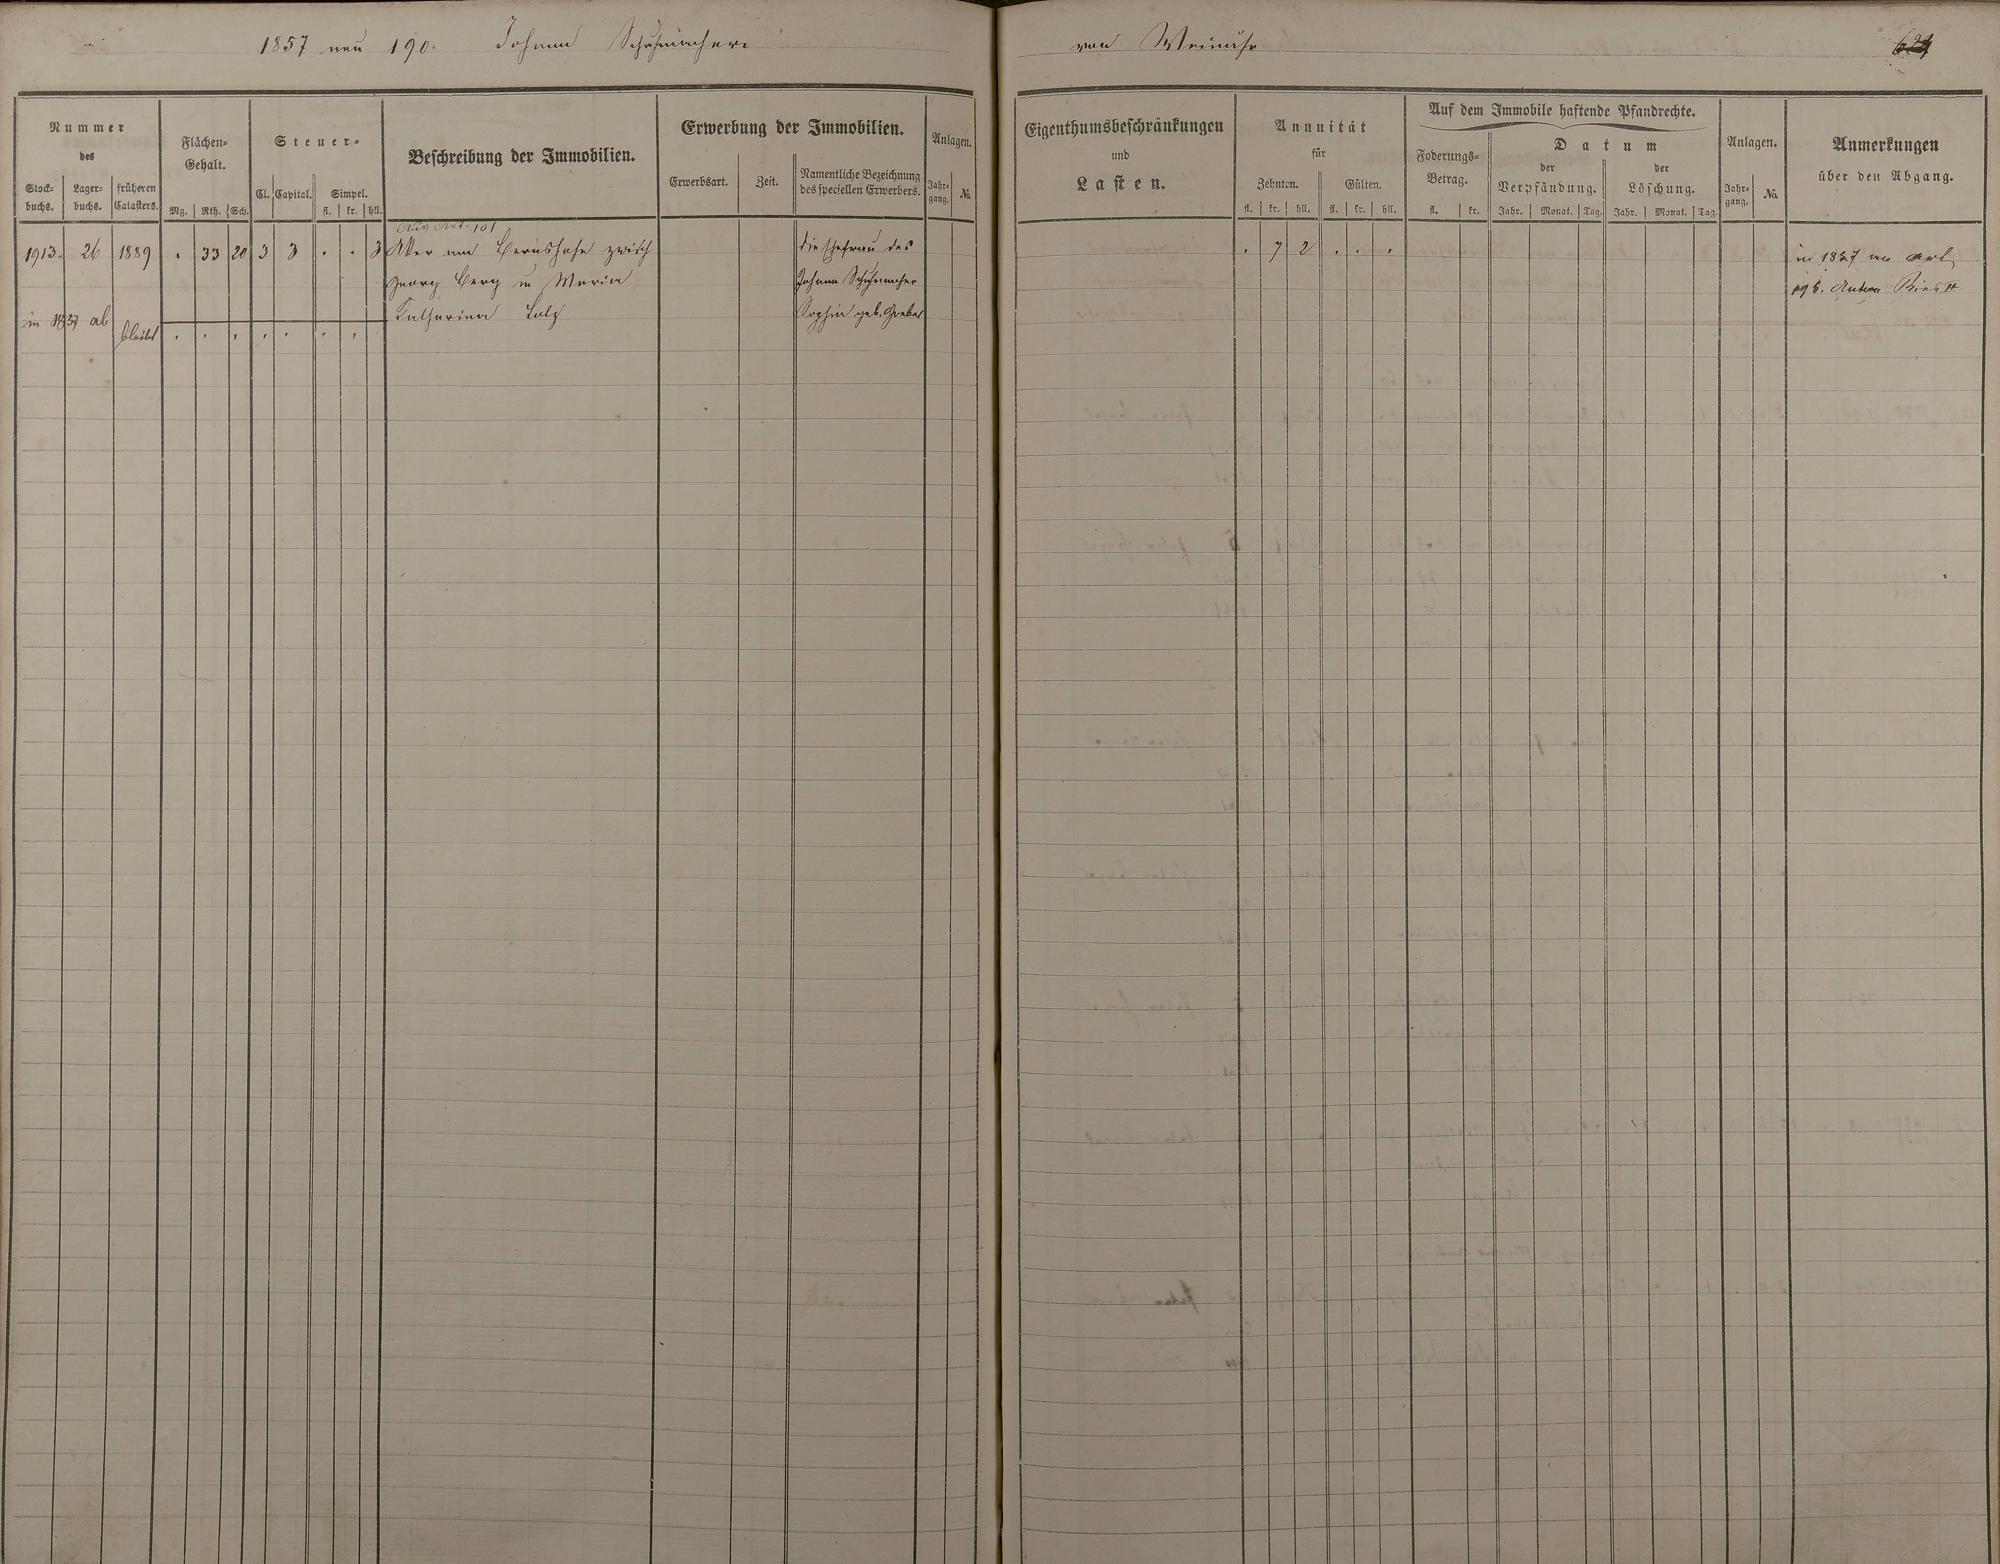 1857 neu 190. Johann Schuhmacher
von Weinähr
Nummer
des
Stock-
buchs.
Lager-
buchs.
früheren
Catasters.
Flächen-
Gehalt.
Mg. Rth. Sch.
Steuer-
Cl. Capital. Simpel.
fl. kr. hll.
Beschreibung der Immobilien.
Erwerbung der Immobilien.
Erwerbsart. Zeit.
Namentliche Bezeichnung
des speciellen Erwerbers.
Anlagen.
Jahr-
gang.
No.
Eigenthumsbeschränkungen
und
Lasten.
Annuität
für
Zehnten. Gülten.
fl. kr. hll. fl. kr. hll.
Auf dem Immobile haftende Pfandrechte.
Foderungs-
Betrag.
fl. kr.
Datum
der
Verpfändung.
Jahr. Monat. Tag.
der
Löschung.
Jahr. Monat. Tag.
Anlagen.
Jahr-
gang.
No.
Anmerkungen
über den Abgang.
Aus Art. 101
1913. 26 1889 . 33 20 3 3 . . 3 Aker am Bernshofe zwisch
Georg Berg u Maria
Katharina
die Ehefrau des
Johann Schuhmacher
Sophia geb.
. 7 2 . . .
in 1857 an Art.
Anton
in 1857 ab
bleibt . . . . . . .